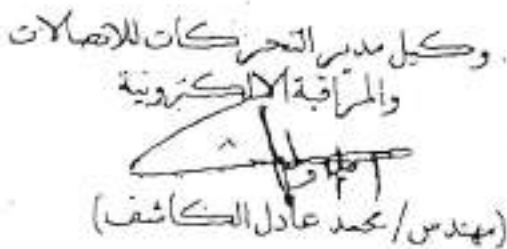 وكيل مدير التحركات للاتصالات
والمراقبة الالكترونية
(مهندس/محمد عادل الكاشف)